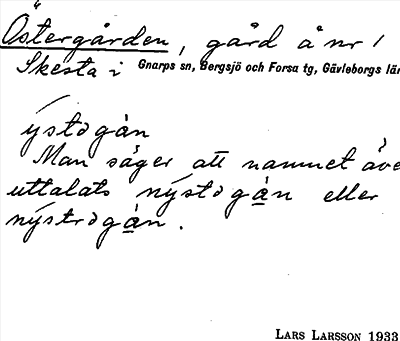 Östergården, gård å nr 1
Skesta i Gnarps sn, Bergsjö och Forsa tg, Gävleborgs lär
ýstogàn
Man säger att namnet äve
uttalats nýstogàn eller
nýstrogàn.
LARS LARSSON 1933